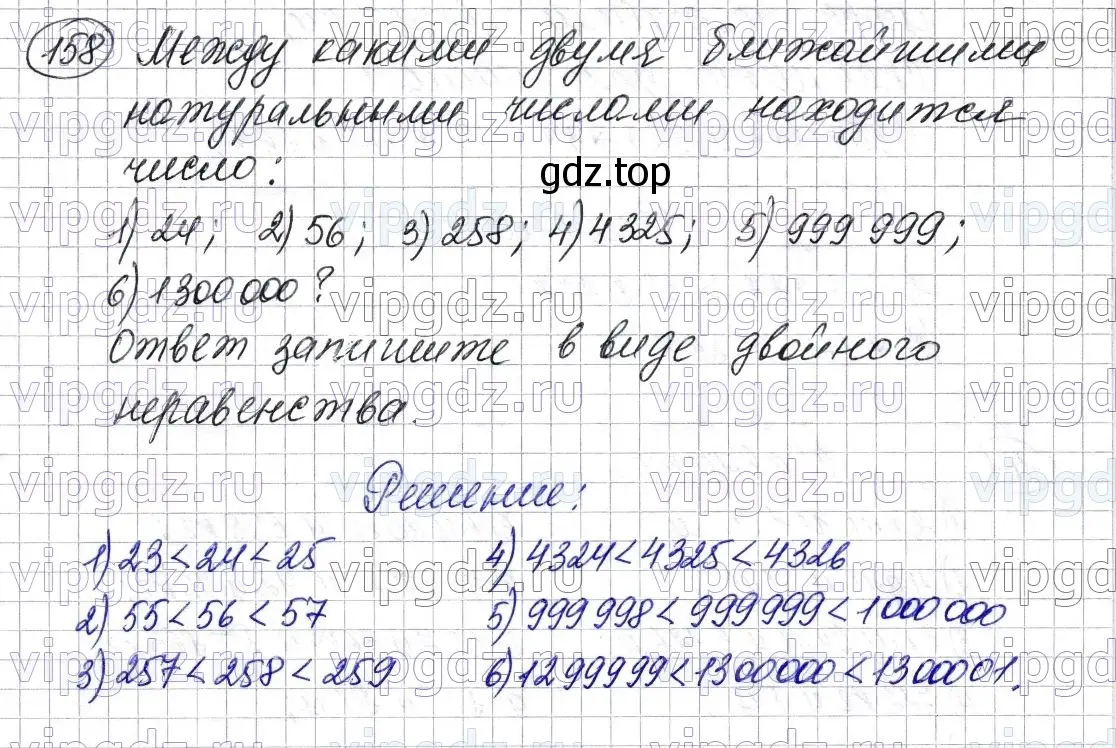 158 Между какими двумя ближайшими
натуральными числами находится
число:
gdz.top
1) 24; 2) 56; 3) 258; 4) 4325; 5) 999 999;
6) 1300 000?
Ответ запишите в виде двойного
неравенства.
Решение:
1) 23 < 24 < 25
2) 55 < 56 < 57
3) 257 < 258 < 259
4) 4324 < 4325 < 4326
5) 999 998 < 999 999 < 1 000 000
6) 1299999 < 1300000 < 1300001.
vipgdz.ru